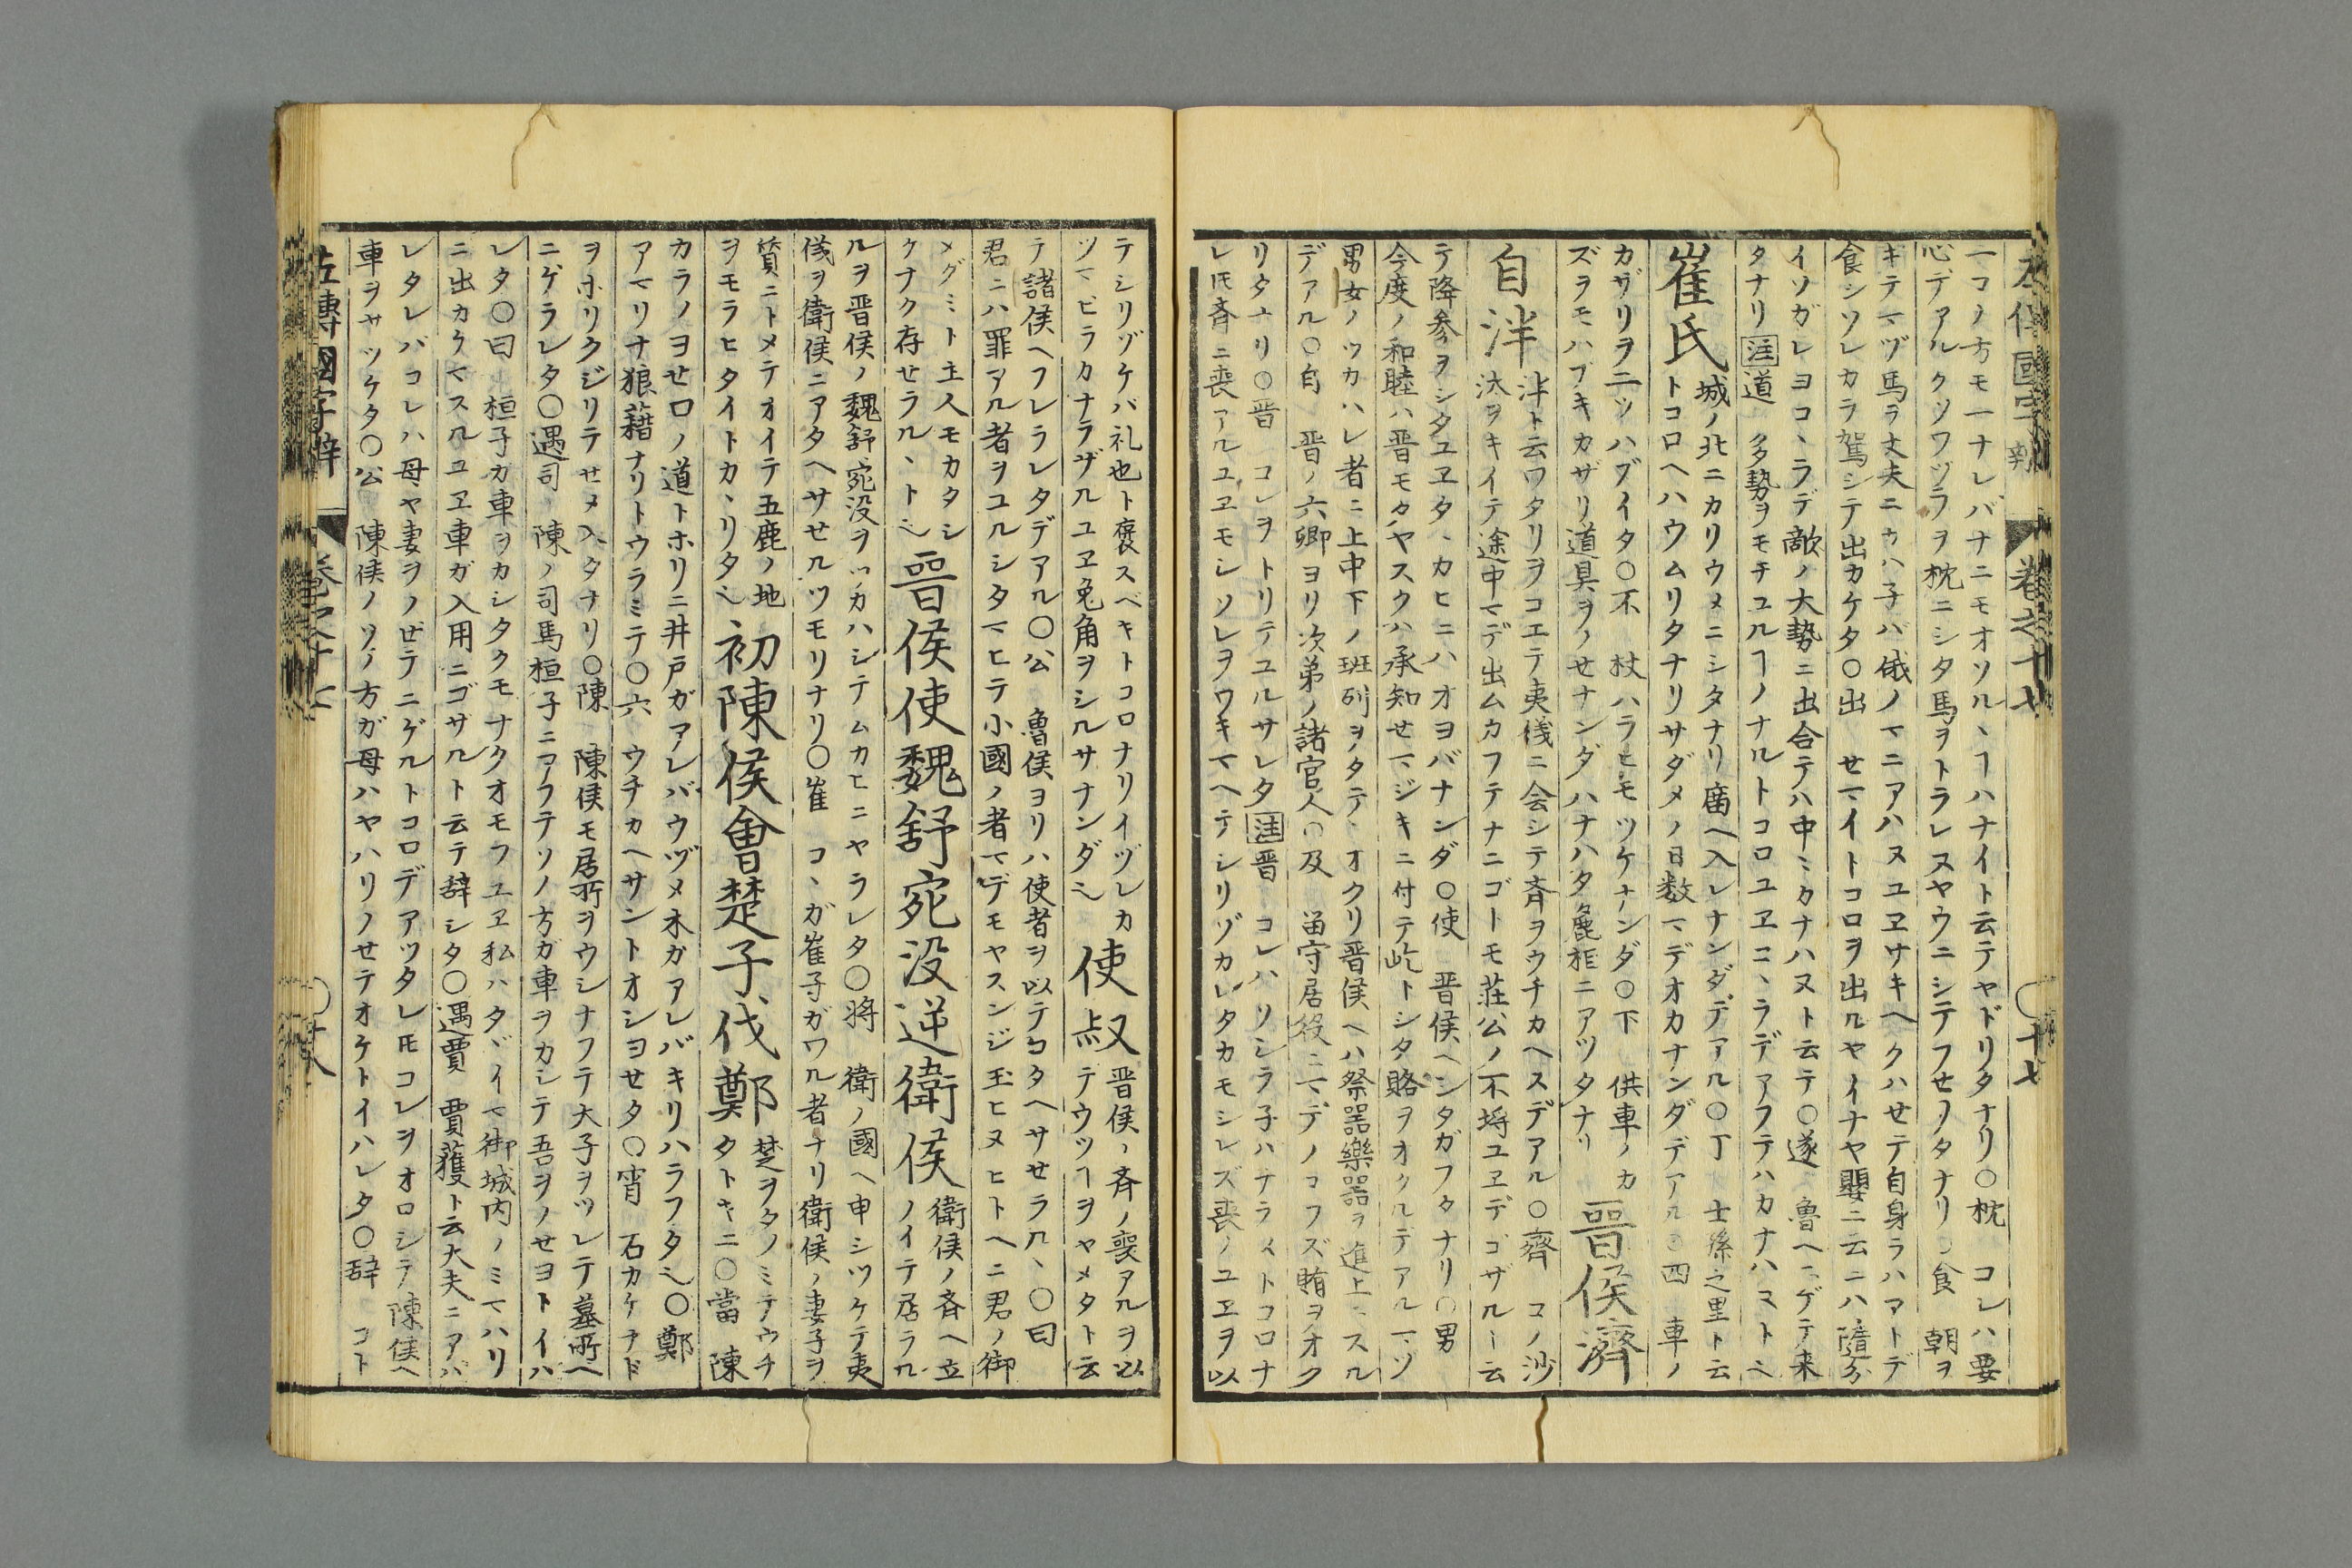 左傳國字辯 卷之十七 〇十七
一コノ方モ一ナレバナニモオソルヽヿハナイト云テヤドリタナリ〇枕 コレハ要
心デアル クソワヅラヲ枕ニシタ馬ヲトラレヌヤウニシテフせリタナリ〇食 朝ヲ
キテマヅ馬ラ丈夫ニカハ子バ俄ノマニアハヌユヱサキヘクハせテ自身ラハアトデ
食シソレカラ駕シテ出カケタ〇出 せマイトコロヲ出ルヤイナヤ嬰ニ云ニハ隨分
イソガレヨコヽラデ敵ノ大勢ニ出合テハ中ミカナハヌト云テ〇遂 魯ヘニゲテ来
タナリ 注 道 多勢ヲモチユルヿノナルトコロユヱコヽラデアフテハカナハマトミ
崔氏
城ノ北ニカリウメニシタナリ廟ヘ入レナンダデアル〇丁 士孫之里ト云
トコロヘハウムリタナリサダメノ日数マデオカナンダデアル〇四 車ノ
カザリヲ二ツハブイタ〇不 杖ハラヒモツケナンダ〇下 供車ノカ
ズラモハブキカザリ道具ヲノせナンダハナハタ麁柜ニアツタナリ
晉侯濟
自泮
泮ト云ワタリヲコエテ夷儀ニ会シテ斉ヲウチカヘスデアル〇齊 コノ沙
汰ヲキイテ途中マデ出ムカフテナニゴトモ荘公ノ不埒ユヱデゴザルト云
テ降参ヲシタユヱタヽカヒニハオヨバナンダ〇使 晋侯ヘシタガフタナリ〇男
今度ノ和睦ハ晋モタヤスクハ承知せマジキニ付テ屹トシタ賂ヲオクルデアルマヅ
男女ノツカハレ者ニ上中下ノ班列ヲタテヽオクリ晋侯ヘハ祭器樂器ラ進上マスル
デアル〇自 晋ノ六卿ヨリ次第ノ諸官人〇及 留守居役ニマデノコフズ賄ヲオク
リタナリ〇晋 コレヲトリテユルサレタ 注 晋 コレハソシラ子ハナラヌトコロナ
レ𪜈斉ニ喪アルユヱモシソレヲウキマヘテシリゾカレタカモシレズ喪ノユヱヲ以
テシリゾケバ礼也ト褒スベキトコロナリイヅレカ
ツマビラカナラザルユヱ兎角ヲシルサナンダミ
使叔
晋侯ヽ斉ノ喪アルヲ以
テウツヿヲヤメタト云
テ諸侯ヘフレラレタデアル〇公 魯侯ヨリハ使者ヲ以テコタヘサせラルヽ〇曰
君ニハ罪アル者ヲユルシタマヒテ小國ノ者マデモヤスンジ玉ヒヌヒトヘニ君ノ御
メグミト主人モカタシ
ケナク存せラルヽトミ
晉侯使魏舒宛没逆衛侯
衛侯ノ斉ヘ立
ノイテ居ラル
ルヲ晋侯ノ魏舒宛没ヲツカハシテムカヒニヤラレタ〇将 衛ノ國ヘ申シツケテ夷
儀ヲ衛侯ニアタヘサせルツモリナリ〇崔 コヽガ崔子ガワル者ナリ衛侯ノ妻子ヲ
質ニトメテオイテ五鹿ノ地
ヲモラヒタイトカヽリタミ
初陳侯會楚子伐鄭
楚ヲタノミテウチ
タトキニ〇當 陳
カラノヨせ口ノ道トホリニ井戸ガアレバウヅメ木ガアレバキリハラフタミ〇鄭
アマリナ狼藉ナリトウラミテ〇六 ウチカヘサントオシヨせタ〇宵 石カケヲド
ヲホリクジリテせメ入タナリ〇陳 陳侯モ居所ヲウシナフテ大子ヲツレテ墓所ヘ
ニゲラレタ〇遇司 陳ノ司馬桓子ニアフテソノ方ガ車ヲカシテ吾ヲノせヨトイハ
レタ〇曰 桓子カ車ヲカシタクモナクオモフユヱ私ハタヾイマ御城内ノミマハリ
ニ出カケマスルユヱ車ガ入用ニゴザルト云テ辞シタ〇遇賈 賈獲ト云大夫ニアハ
レタレバコレハ母ヤ妻ヲノせテニゲルトコロデアツタレ𪜈コレヲオロシテ陳侯ヘ
車ヲヤツケタ〇公 陳侯ノソノ方ガ母ハヤハリノせテオケトイハレタ〇辞 コト
左傳國字辯 卷之十七 〇十八